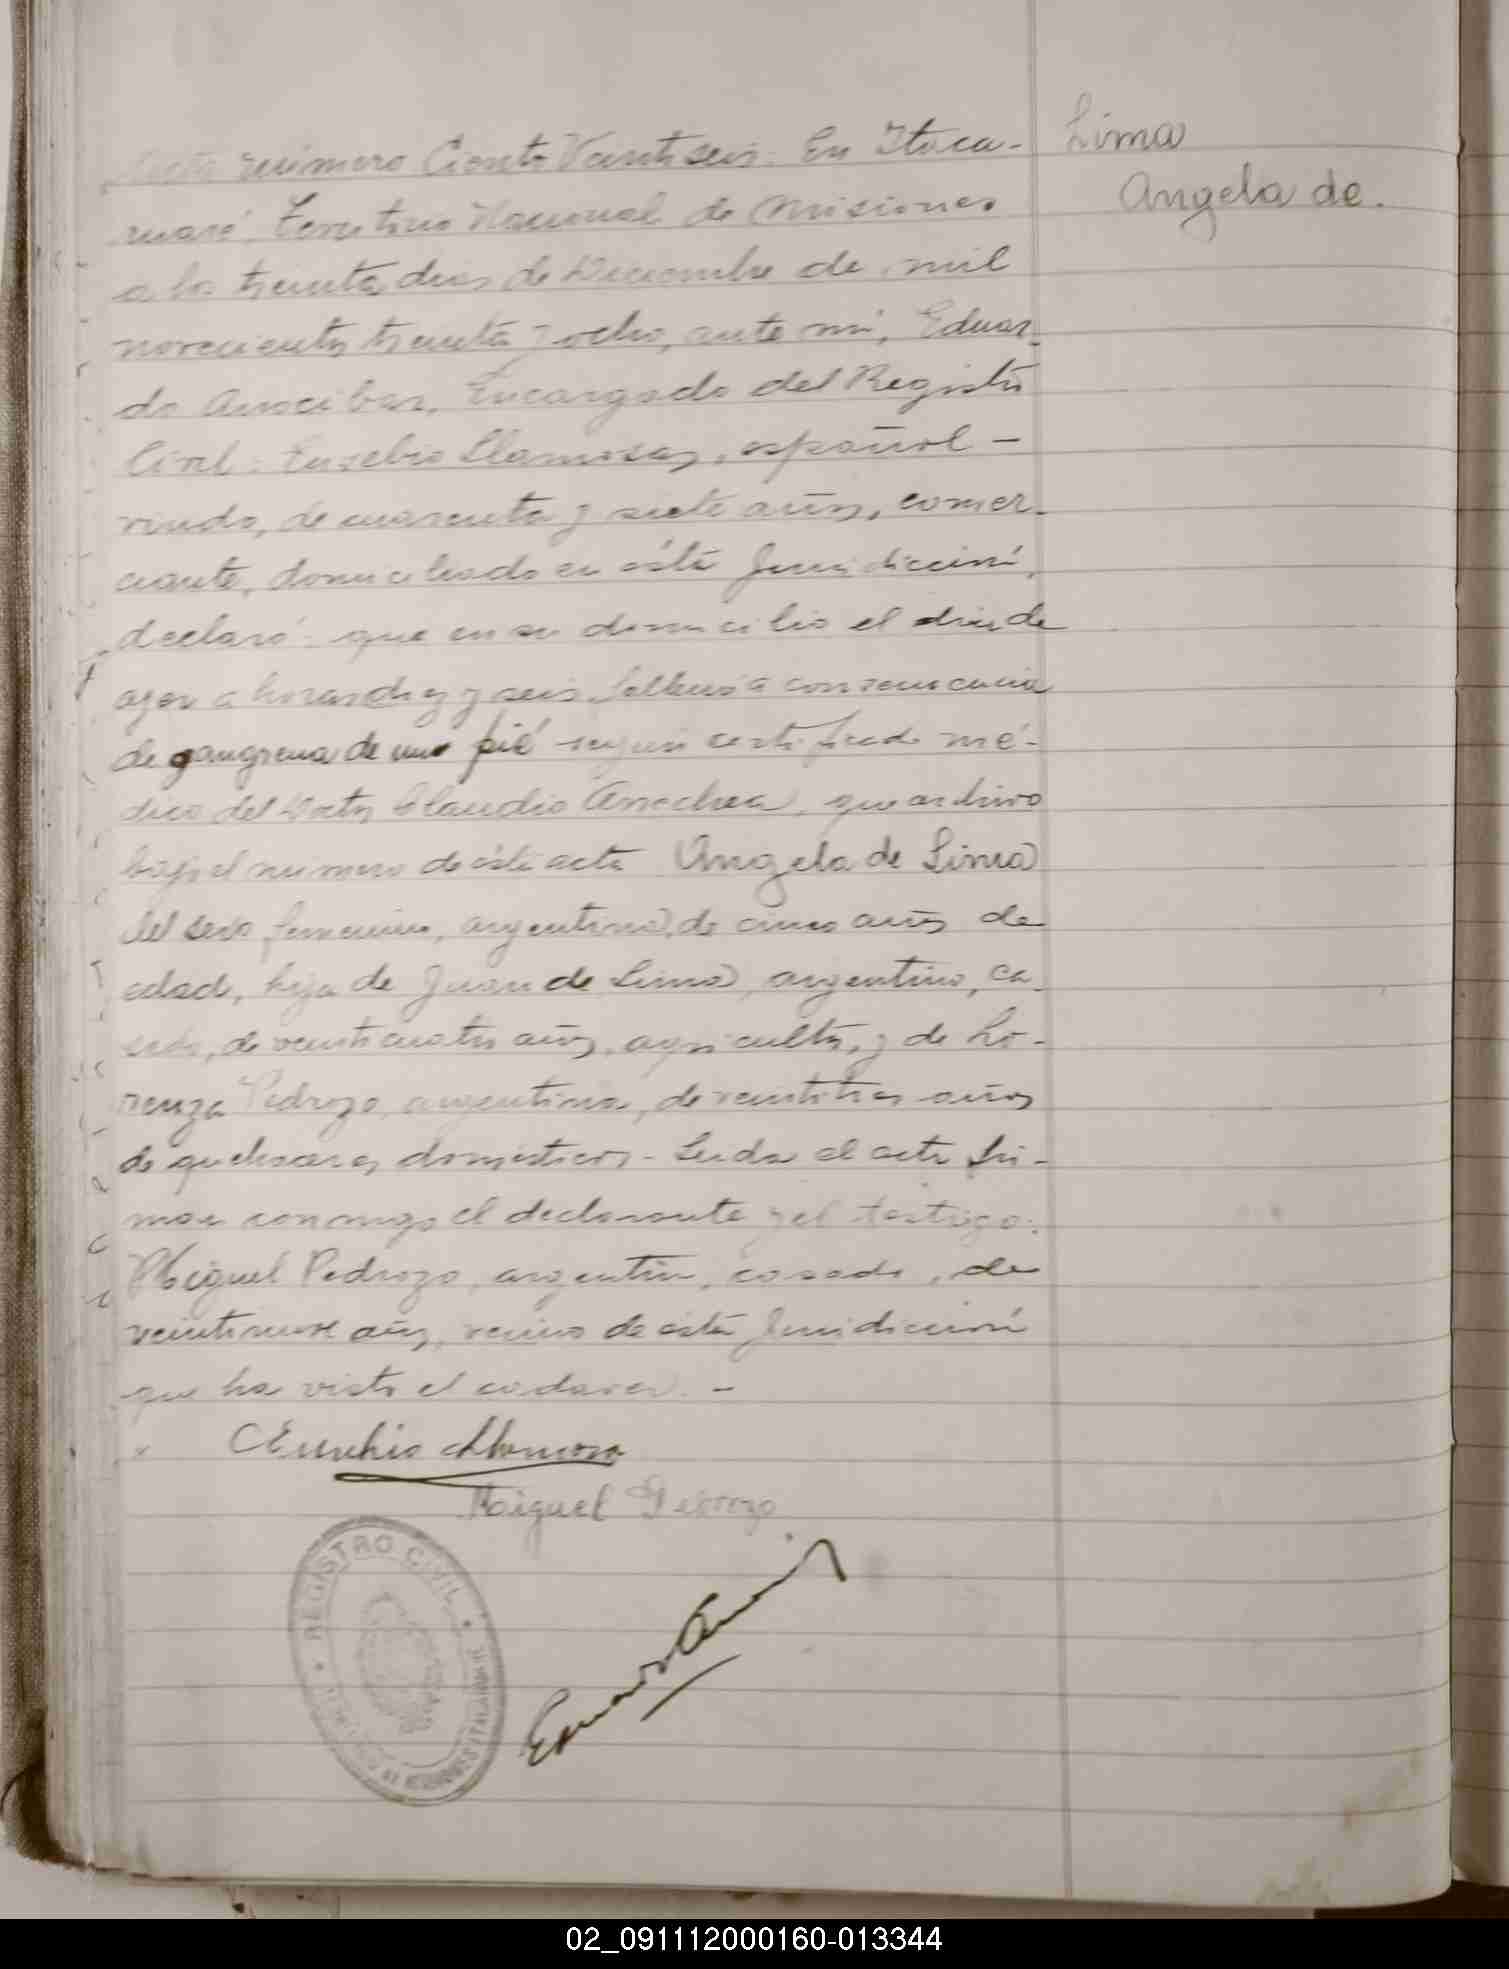 Acta número Ciento Veintiseis. En Itaca-
ruaré, Territorio Nacional de Misiones
a los treinta dias de Diciembre de mil
novecientos treinta y ocho, ante mi, Eduar-
do Arocibar, Encargado del Registro
Civil: Eusebio Llamosas, español -
viudo, de cuarenta y siete años, comer-
ciante, domiciliado en ésta Jurisdicción,
declaró: que en su domicilio el dia de
ayer a horas diez y seis falleció a consecuencia
de gangrena de un pié según certificado mé-
dico del Doctor Claudio Arrechea, que archivo
bajo el número de ésta acta Angela de Lima
del sexo femenino, argentina, de cinco años de
edad, hija de Juan de Lima, argentino, ca-
sado, de veinticuatro años, agricultor, y de Lo-
renza Pedrozo, argentina, de veintitres años
de quehaceres domésticos - Leida el acta fir-
man conmigo el declarante y el testigo:
Miguel Pedrozo, argentino, casado, de
veintinueve años, vecino de ésta Jurisdicción
que ha visto el cadaver. -
Eusebio Llamosas
Miguel Pedrozo
Lima
Angela de.
REGISTRO CIVIL
02_091112000160-013344